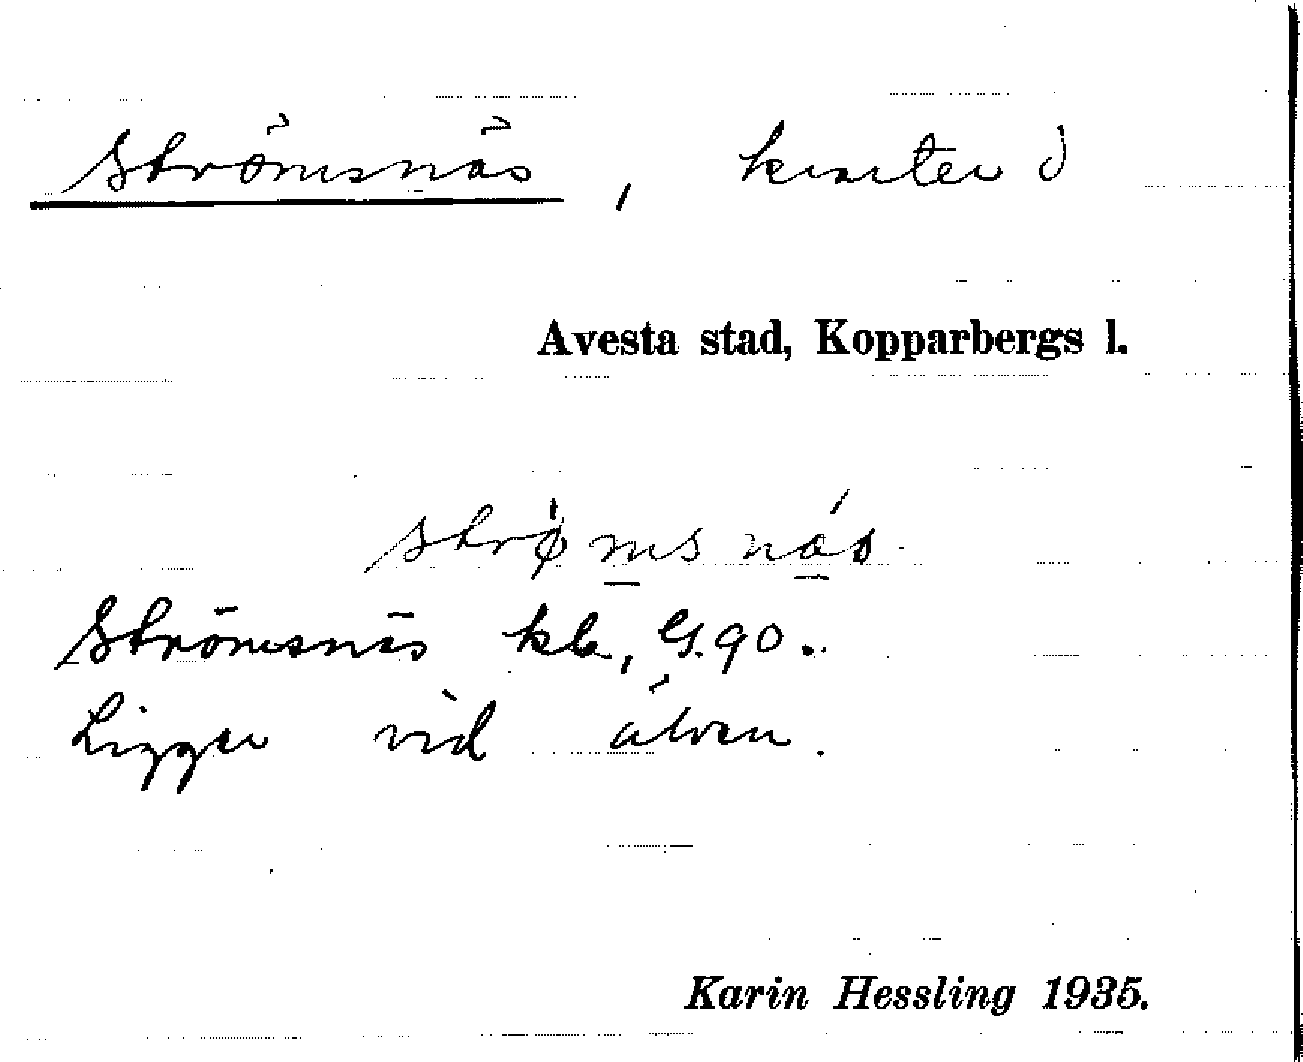 Strömsnäs, kvarter i
Avesta stad, Kopparbergs l.
strø̀msnás
Strömsnäs kb, G.90.
Ligger vid älven.
Karin Hessling 1935.